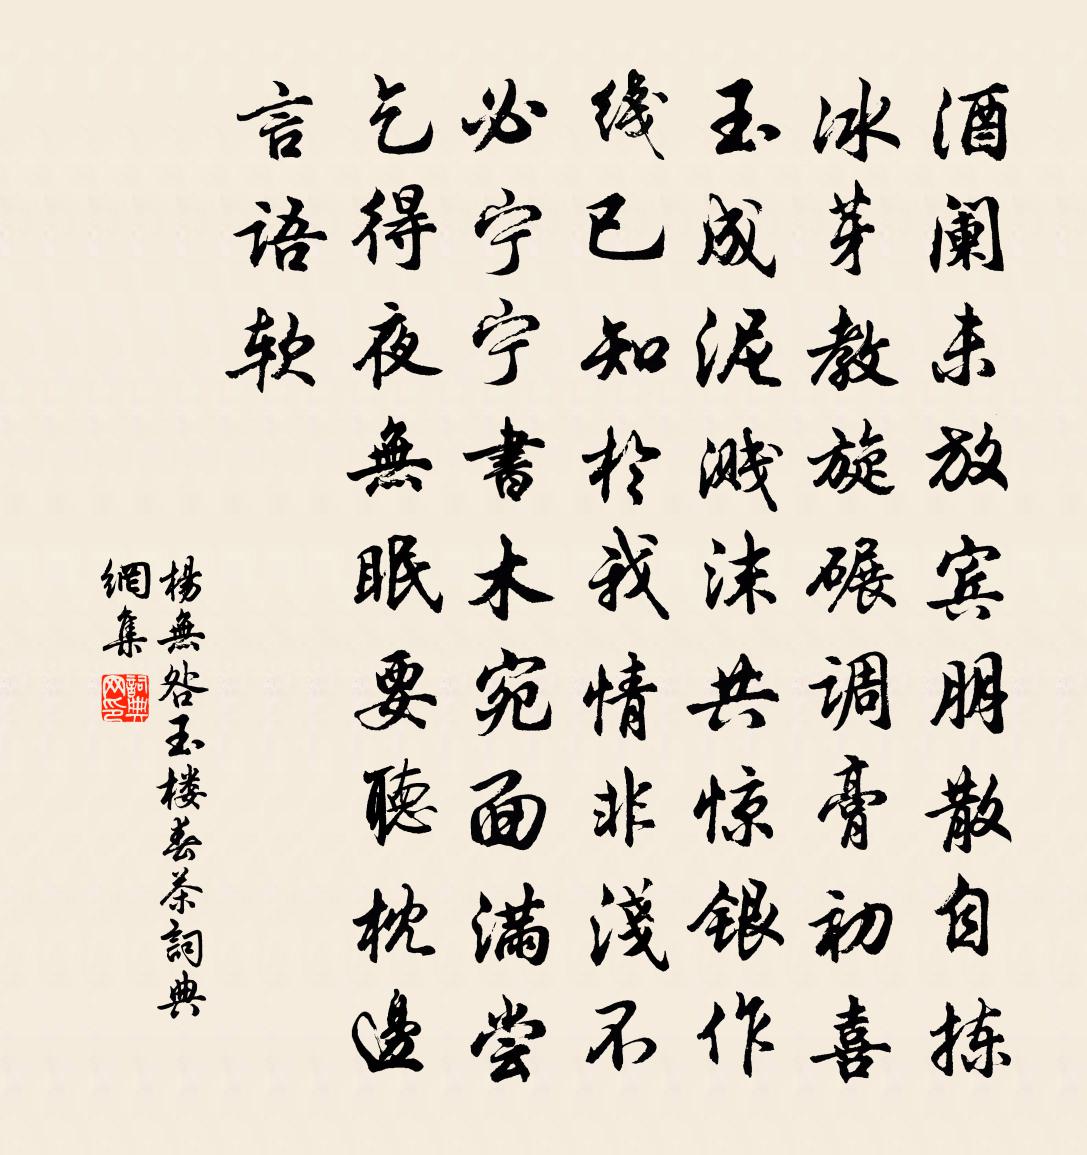 酒阑未放宾朋散自拣
冰芽教旋碾调膏初喜
玉成泥溅沫共惊银作
线已知於我情非淺不
必宁宁書木宛面满尝
乞得夜無眠要聽枕邊
言语软
楊無咎玉楼春茶詞典
網集
詞典网印